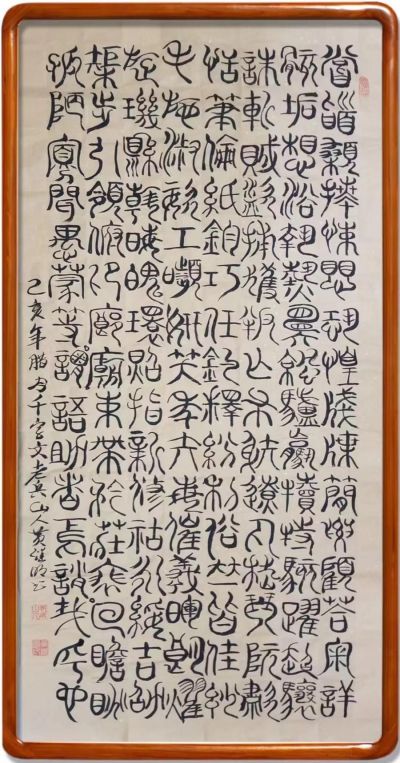 嘗稽顙拜悚懼恐惶牋牒簡要顧答審詳
骸垢想浴執熱願涼驢騾犢特駭躍超驤
誅斬賊盜捕獲叛亡布射遼丸嵇琴阮嘯
恬筆倫紙鈞巧任釣釋紛利俗並皆佳妙
毛施淑姿工顰妍笑年矢每催曦暉朗耀
璇璣懸斡晦魄環照指薪修祜永綏吉劭
矩步引領俯仰廊廟束帶矜莊徘徊瞻眺
孤陋寡聞愚蒙等誚謂語助者焉哉乎也
己亥年腊月千字文山人黄